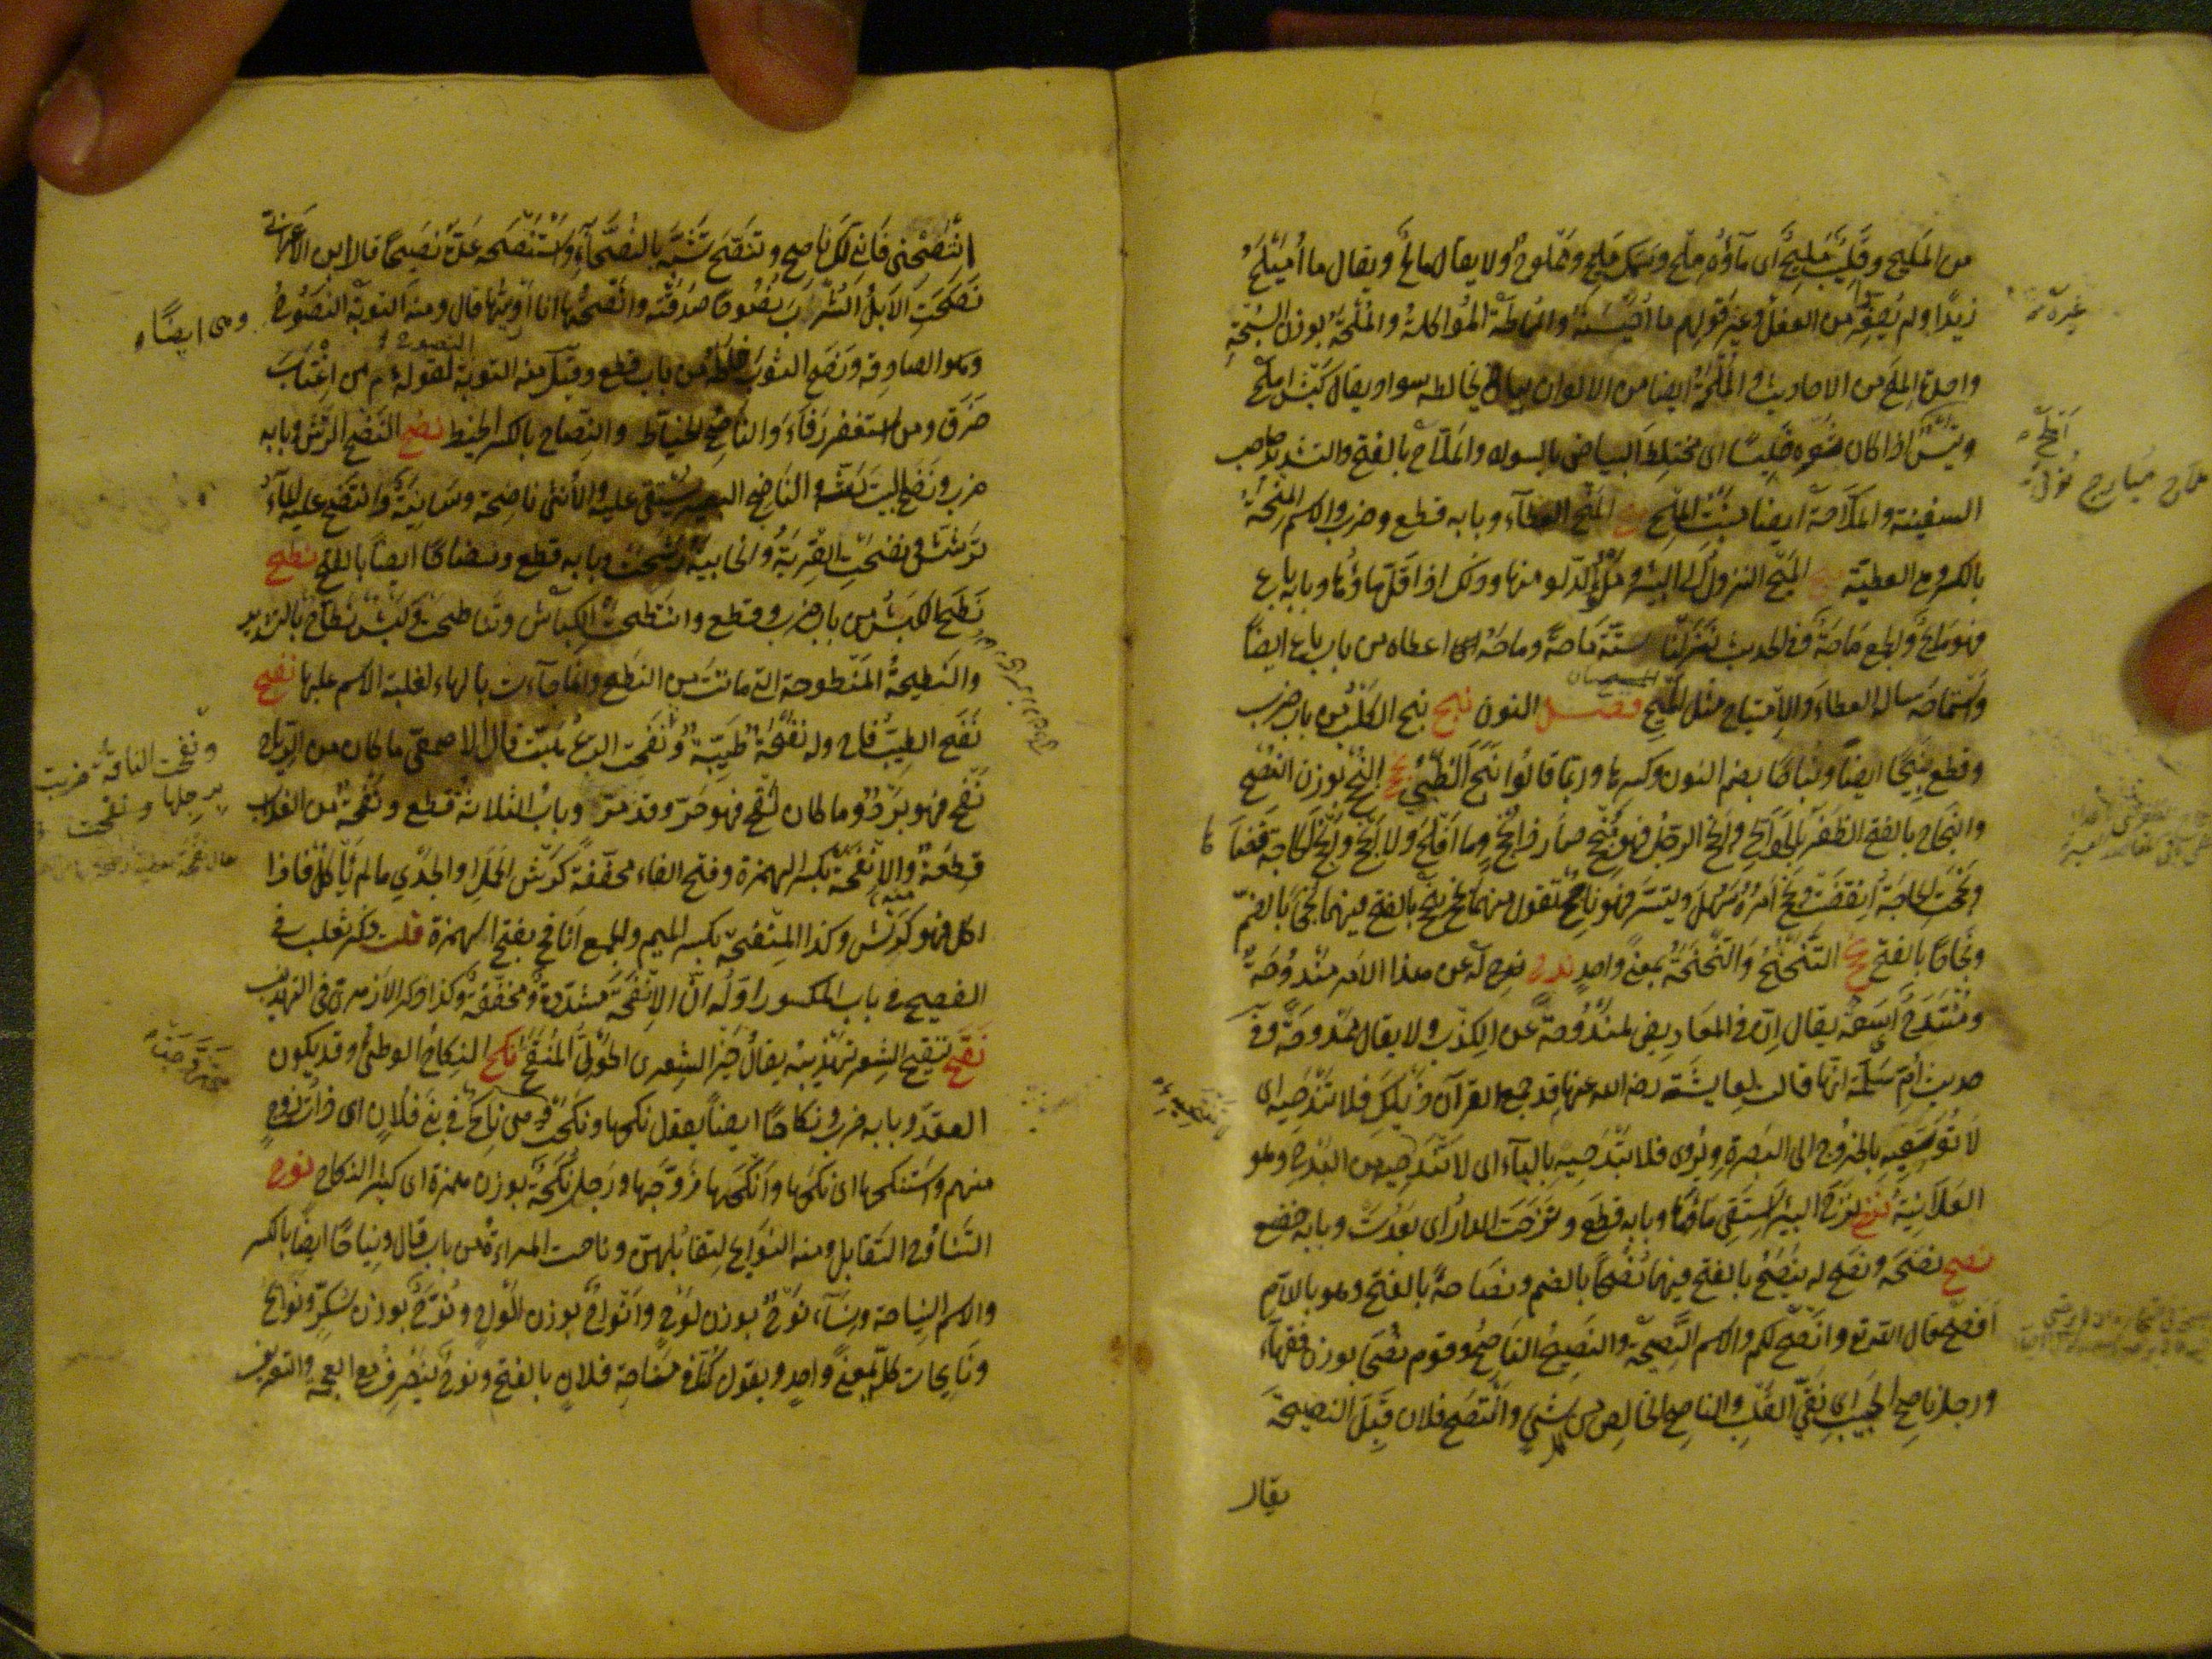 من المليح وقليب مليح أى ماؤه ملح وسمك مليح ومملوح ولا يقال مالح ويقال ما أميلح
زيدا ولم يصغر من الفعل غير قولهم ما أحيسنه والممالحة المواكلة والملحة بوزن السبحة
واحدة الملح من الاحاديث والملحة ايضا من الالوان بياض يخالطه سواد يقال كبش املح
وتيس اذا كان شعره خليسا اى مختلط البياض بالسواد والملاح بالفتح والتشديد صاحب
السفينة والملاحة ايضا منبت الملح منح المنح العطاء وبابه قطع وضرب والاسم المنحة
بالكسر وهى العطية ميح الميح النزول الى البئر وملء الدلو منها وذلك اذا قل ماؤها وبابه باع
فهو مائح والجمع ماحة وفى الحديث نزلنا ستة ماحة وماحه اعطاه من باب باع ايضا
واستماحه ساله العطاء والامتياح مثل الميح فصل النون نبح نبح الكلب من باب ضرب
وقطع نبيحا ايضا ونباحا بضم النون وكسرها وربما قالوا نبح الظبى نجح النجح بوزن النصح
والنجاح بالفتح الظفر بالحوائج وانجح الرجل فهو منجح صار ذا نجح وما افلح ولا انجح ونجح الحاجة قضا ها
ونجحت الحاجة انقضت ونجح امره سهل وتيسر فهو ناجح تقول منهما نجح ينجح بالفتح فيهما نجحا بالضم
ونجاحا بالفتح نحح التنحنح والنحنحة بمعنى واحد ندح له عن هذا الامر مندوحة
ومنتدح أى سعة يقال ان فى المعاريض لمندوحة عن الكذب ولا يقال ممدوحة وفى
حديث ام سلمة انها قالت لعايشة رضى الله عنها قد جمع القرآن ذيلك فلا تندحيه اى
لا توسعيه بالخروج الى البصرة ويروى فلا تبدحيه بالباء اى لا تفتحيه من البدح وهو
العلانية نزح نزح البئر استقى ماءها وبابه قطع ونزحت الدار اى بعدت وبابه خضع
نصح نصحه ونصح له ينصح بالفتح فيهما نصحا بالضم ونصاحة بالفتح وهو باللام
افصح قال الله تع وانصح لكم والاسم النصيحة والنصيح الناصح وقوم نصحاء بوزن فقهاء
ورجل ناصح الجيب اى نقى القلب والناصح الخالص من كل شئ وانتصح فلان قبل النصيحة
يقال
غيره
انتصحنى فانى لك ناصح وتنصح تشبه بالنصحاء واستنصحه عده نصيحا قال ابن الاعرابى
نصحت الابل الشرب نصوحا صدقته وانصحتها انا ارويتها قال ومنه التوبة النصوح
وهى ايضا
وهو الصادقة ونصح الثوب خاطه من باب قطع وقيل منه التوبة لقوله عم من اغتاب
النصوح
خرق ومن استغفر رفاء والناصح الخياط والنصاح بالكسر الخيط نضح النضح الرش وبابه
ضرب ونضح البيت رشه والناضح البعير يستقى عليه والانثى ناضحة وسانية وانتضح عليه الماء
ترشش ونضحت القربة والخابية رشحت وبابه قطع وتنضاحا ايضا بالفتح نطح
نطحه الكبش من باب ضرب وقطع وانتطحت الكباش وتناطحت وكبش نطاح بالتشديد
والنطيحة المنطوحة التى ماتت من النطح وانما جاءت بالهاء لغلبة الاسم عليها نفح
نفح الطيب فاح وله نفحة طيبة ونفحت الريح هبت قال الاصمعى ما كان من الرياح
ونفحت الناقة ضربت
برجلها ونفحت
نفح فهو برد وما كان لفح فهو حر وقد مر وباب الثلاثة قطع ونفحة من العذاب
قطعة والانفحة بكسر الهمزة وفتح الفاء مخففة كرش الحمل او الجدى ما لم ياكل فاذا
اكل فهو كرش وكذا المنفحة بكسر الميم والجمع انافح بفتح الهمزة قلت وذكر ثعلب فى
الفصيح فى باب المكسور اوله ان الانفحة مشددة ومخففة وكذا ذكر الازهرى فى التهذيب
نقح تنقيح الشعر تهذيبه يقال خير الشعر الحولى المنقح نكح النكاح الوطئ وقد يكون
العقد وبابه ضرب ونكاحا ايضا يقول نكحها ونكحت هى وهى ناكح فى بنى فلان اى ذات زوج
منهم واستنكحها اى نكحها وانكحها زوجها ورجل نكحة بوزن همزة اى كثير النكاح نوح
التناوح التقابل ومنه النوايح لتقابلهن وناحت المراءة من باب قال ونياحا ايضا بالكسر
والاسم النياحة ونساء نوح بوزن لوح وانواح بوزن الواح ونوح بوزن سكر ونوايح
ونايحات كله بمعنى واحد ويقول كنا فى مناحة فلان بالفتح ونوح ينصرف مع العجمة والتعريف